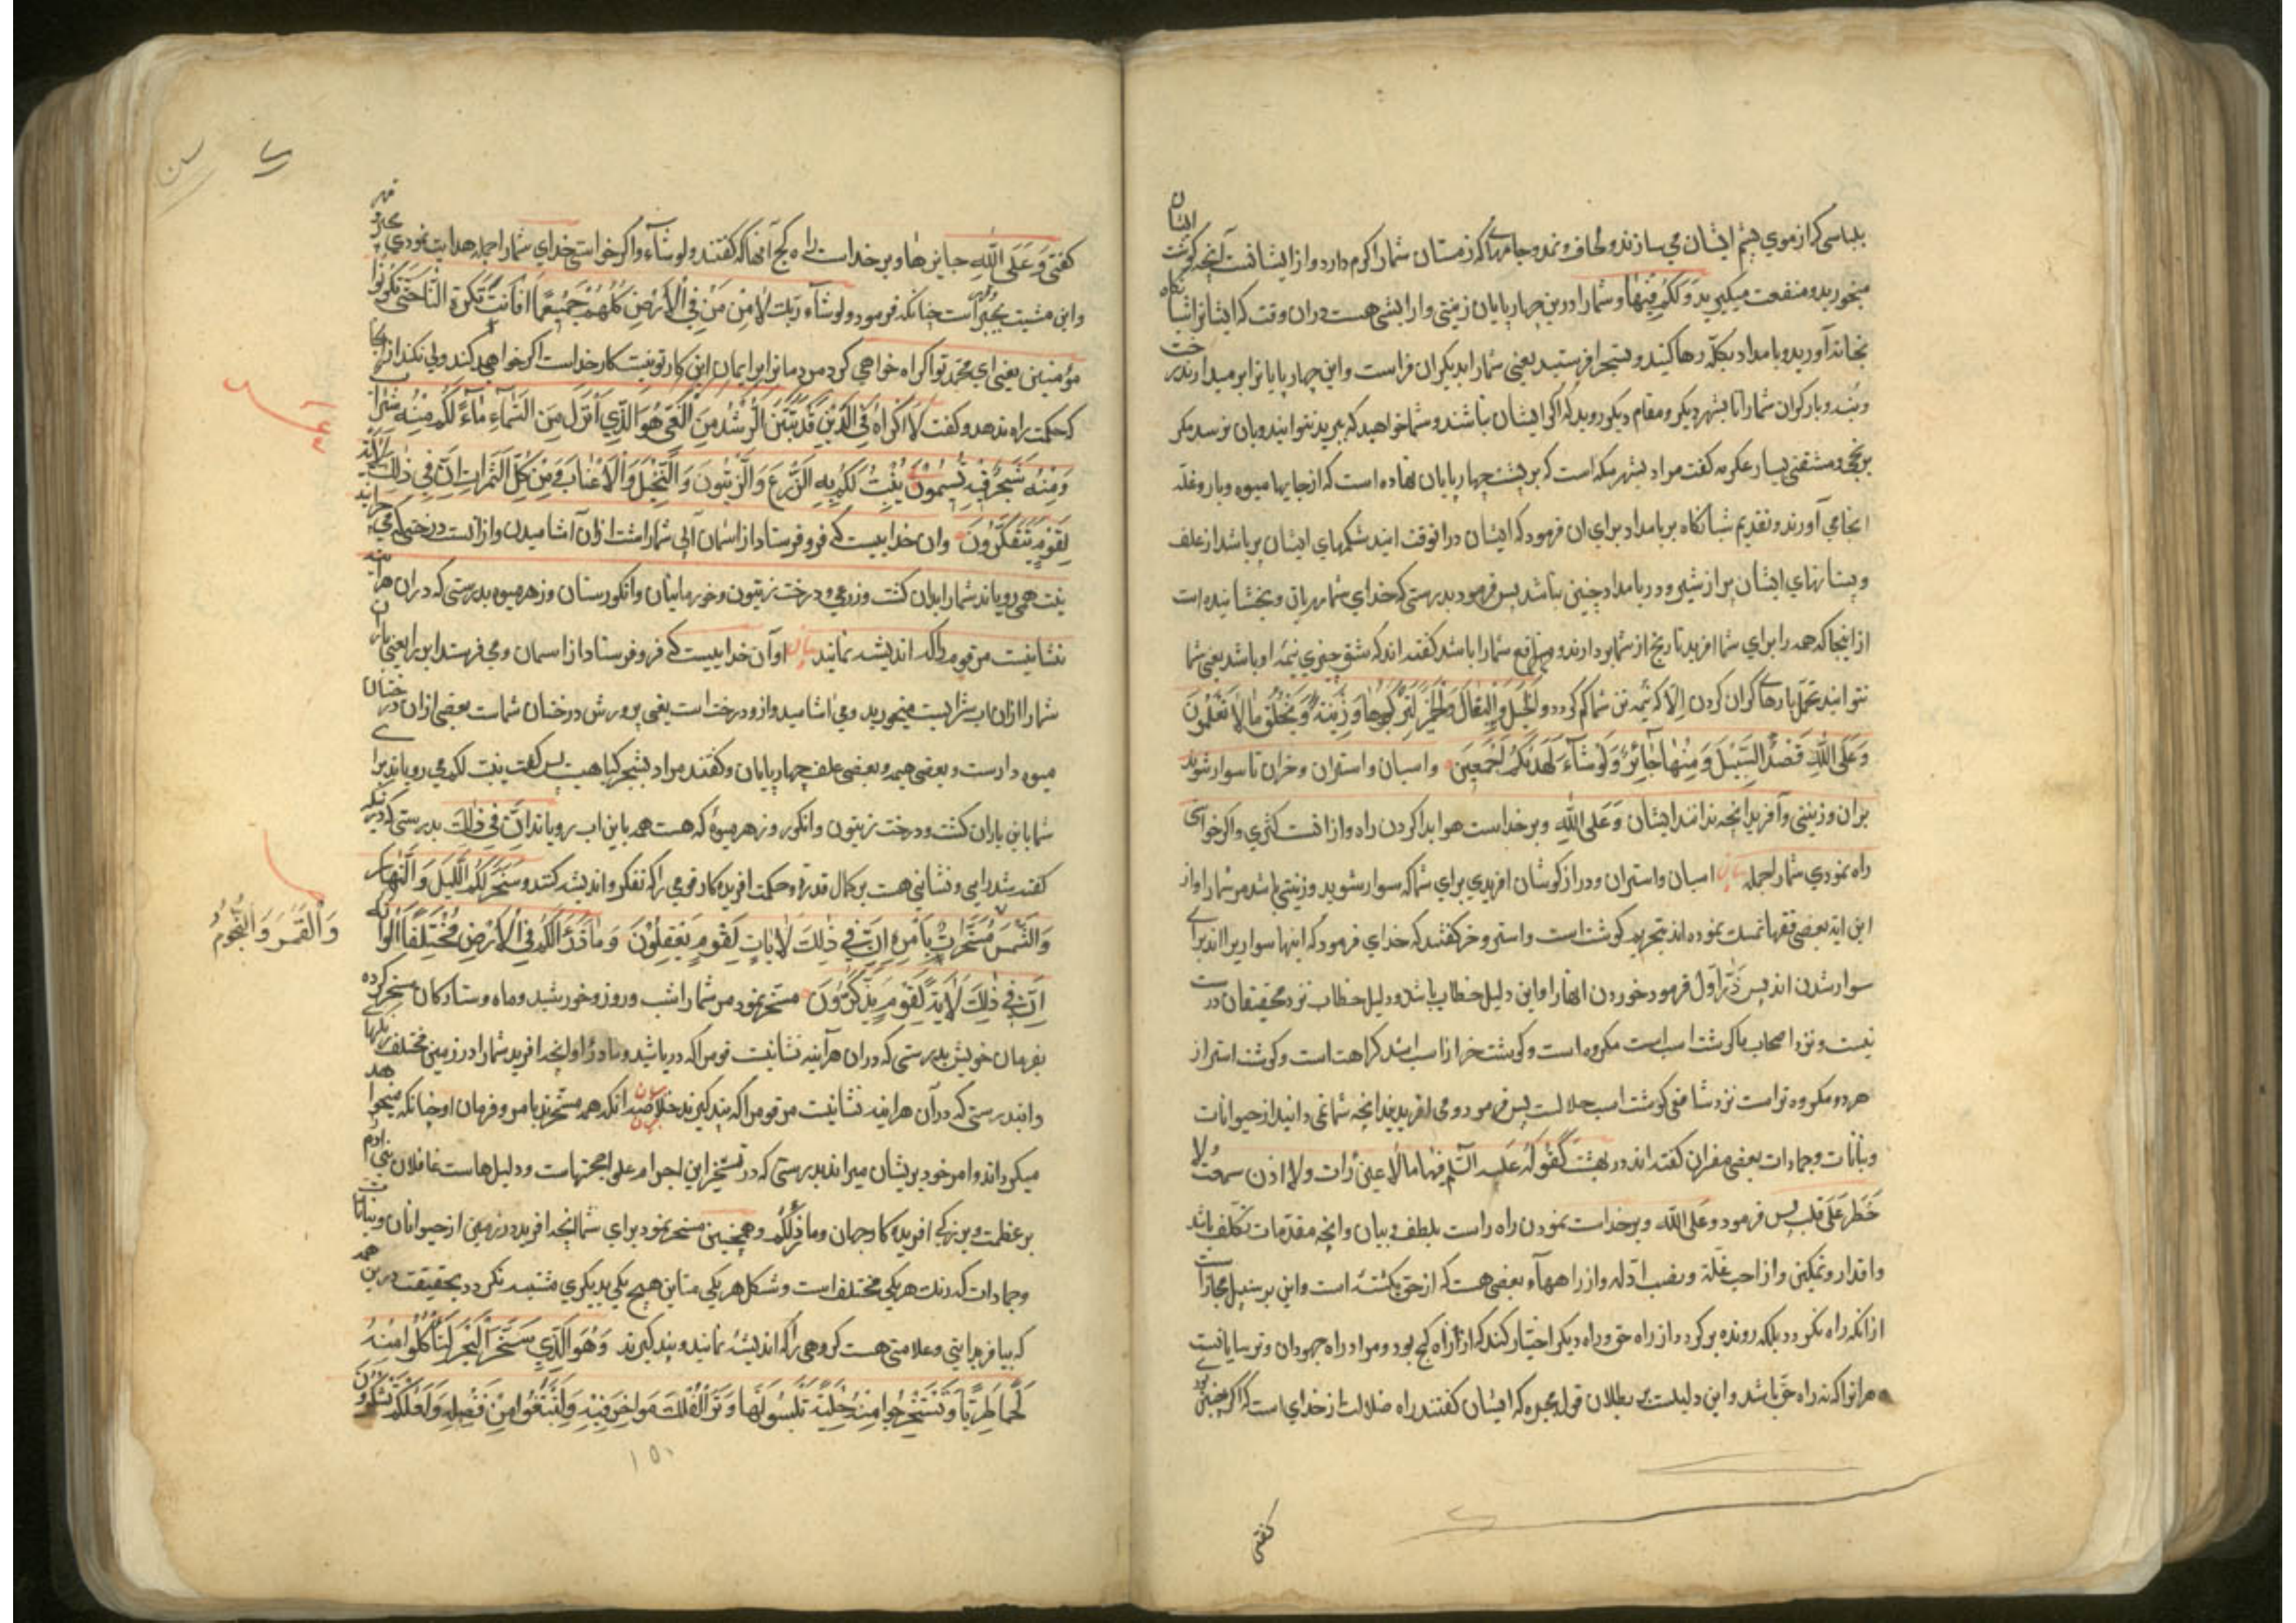 بلباسی که از موي پشم ایشان می سازند و لحاف و نمد و جامهاي که زمستان شما را کرم دارد و از ایشانست آنچه کوشت ایشان
میخورید و منفعت میکیرید وَلَکُم فِیهَا و شما را درین چهارپایان زینتی و ارایشی هست دران وقت که ایشانرا شبانکاه
بخانه آورید و بامداد بکله رها کنید و بتیجر افرستید یعنی شما را بدیکران فراست و این چهارپایانرا بر میدارند رخت
و بنه و بار کران شما را تا بشهر دیکر و مقام دیکر روید که اکر ایشان نباشند و شما خواهید که ببرید نتوانید و بان نرسد مکر
برنجی و مشقتی بسیار عکرمه کفت مراد بشهر مکه است که بر پشت چهارپایان نهاده است که از جایها میوه و بار و غله
انجا می آورند و تقدیم شبانکاه بر بامداد برای ان فرمود که ایشان در انوقت ایند شکمهاي ایشان پر باشد از علف
و پستانهاي ایشان پر از شیر و در بامداد چنین نباشد پس فرمود بدرستی که خداي شما مهربان و بخشاینده است
از اینجا که همه را براي شما افرید تا رنج از شما بردارند و منافع شما را باشد کفته اند که شق چیزي نیمه او باشد یعنی شما
نتوانید تحمل بارهاي کران کردن الا که نیمه تن شما کم کردد وَالْخَیْلَ وَالْبِغَالَ وَالْحَمِیرَ لِتَرْکَبُوهَا وَزِینَةً وَیَخْلُقُ مَا لَا تَعْلَمُونَ
وَعَلَی اللّٰهِ قَصْدُ السَّبِیلِ وَمِنْهَا جَائِرٌ وَلَوْ شَآءَ لَهَدٰیکُمْ اَجْمَعِینَ و اسبان و استران و خران تا سوار شوید
بران و زینتی و آفرید انچه ندانند ایشان وَعَلَی اللّٰهِ و بر خداست هویدا کردن راه و از انست کژي و اکر خواستی
راه نمودي شما را جمله بیان اسبان و استران و دراز کوشان افریدي براي شما که سوار شوید و زینتی باشد مر شما را و از
این ایه بعضی فقها تمسک نموده اند بتحریم کوشت است و استر و خر کفتند که خداي فرمود که اینها سواري را اند براي
سوار شدن اند پس در اول فرمود خوردن انها را و این دلیل خطاب باشد و دلیل خطاب نزد محققان درست
نیست و نزد اصحاب ما کوشت اسب مکروه است و کوشت خر از اسب اشد کراهت است و کوشت استر از
هر دو مکروه تر است نزد شافعی کوشت اسب حلالست پس فرمود و می افریند انچه شما نمی دانید از حیوانات
و نباتات و جمادات بعضی مفسران کفته اند در بهشت کقوله علیه السلم فیها ما لا عین رات ولا اذن سمعت ولا
خَطَرَ عَلَی قَلب پس فرمود وعلی الله و بر خداست نمودن راه راست بلطف و بیان و انچه مقدمات تکلف باشد
و اقدار و تمکین و ازاحت علّة و نصب ادله و از راهها و بعضی هست که از حق بکشته است و این بر سبیل مجاز است
از انکه راه نکردد بلکه رونده برکردد از راه حق و راه دیکر اختیار کند که از آن راه کج بود و مراد راه جهودان و ترسایانست
هر انرا که نه راه حق باشد و این دلیلست بر بطلان قول مجبره که ایشان کفتند راه ضلالت از خداي است که اکر چنین بودي
کفتی
کفتی وَعَلَی اللّٰهِ جایرها و بر خداست راه کج آنها که کفتند ولوشآء و اکر خواستی خداي شما را جمله هدایت نمودي بجبر و قهر
و این مشیت بجبر است چنانکه فرمود ولو شآء ربّک لاٰمن مَنْ فِی الْاَرْضِ کُلُّهُمْ جَمِیعًا اَفَاَنْتَ تُکْرِهُ النَّاسَ حَتّٰی یَکُونُوا
مؤمنین یعنی اي محمد تو اکراه خواهی کرد مردمانرا بر ایمان این کار تو نیست کار خداست اکر خواهد کند ولی نکند از انجا
که حکمت راه ندهد و کفت لَا اِکْرَاهَ فِی الدِّینِ قَدْ تَبَیَّنَ الرُّشْدُ مِنَ الْغَیِّ هُوَ الَّذِي اَنْزَلَ مِنَ السَّمَآءِ مَآءً لَکُمْ مِنْهُ شَرَابٌ
وَمِنْهُ شَجَرٌ فِیهِ تُسِیمُونَ یُنْبِتُ لَکُمْ بِهِ الزَّرْعَ وَالزَّیْتُونَ وَالنَّخِیلَ وَالْاَعْنَابَ وَمِنْ کُلِّ الثَّمَرَاتِ اِنَّ فِی ذٰلِکَ لَاٰیَةً
لِقَوْمٍ یَتَفَکَّرُونَ و ان خداییست که فرو فرستاد از اسمان آبی شما راست ازان آشامیدن و از انست درختی که می چرانید
ینبت همی رویاند شما را بدان کشت و زرعی و درخت زیتون و خورمایان و انکورستان و ز هر میوه بدرستی که دران هر اینه
نشانیست مر قومی را که اندیشه نمایند بیان او آن خداییست که فرو فرستاد از اسمان و می فرستد ابر را یعنی باران
شما را ازان اب شرابیست میخورید و می اشامید و ازو درخت است یعنی پرورش درختان شماست بعضی ازان درختان
میوه دارست و بعضی هیمه و بعضی علف چهارپایان و کفتند مراد بشجر کیاهیست پس کفت ینبت لکم می رویاند براي
شما باین باران کشت و درخت زیتون و انکور و ز هر میوۀ که هست همه باین اب رویاند اِنَّ فِی ذٰلِکَ بدرستی که درینکه
کفته شد رایی و نشانی هست بر کمال قدرة و حکمت افریدکار قومی را که تفکر و اندیشه کنند وَسَخَّرَ لَکُمُ اللَّیْلَ وَالنَّهَارَ
وَالشَّمْسَ مُسَخَّرَاتٌ بِاَمْرِهِ اِنَّ فِی ذٰلِکَ لَاٰیَاتٍ لِقَوْمٍ یَعْقِلُونَ وَمَا ذَرَاَ لَکُمْ فِی الْاَرْضِ مُخْتَلِفًا اَلْوَانُهُ
وَالْقَمَرَ وَالنُّجُومُ
اِنَّ فِی ذٰلِکَ لَاٰیَةً لِقَوْمٍ یَذَّکَّرُونَ مسخر نمود مر شما را شب و روز و خورشید و ماه و ستارکان مسخر کرده
بفرمان خویش بدرستی که دران هر آینه نشانیست قومی را که دریابند و ما ذرا و انچه افرید شما را در زمین مختلف رنکها
و اند بدرستی که در آن هر اینه نشانیست مر قومی را که پند کیرند بیان انکه همه مسخرند بامر و فرمان او چنانکه میخواهد
میکرداند و امر خود بریشان میراند بدرستی که در تسخیر این اجرام علو حجتهاست و دلیل هاست عاقلان بنی ادم
بر عظمت و بزرکی افریدکار جهان وما ذرا لکم و همچنین مسخر نمود براي شما انچه افرید در زمین از حیوانات و نباتات
و جمادات که رنک هر یکی مختلف است و شکل هر یکی متباین هیچ یکی بدیکري مشتبه نکردد بحقیقت درین همه
که بیافرید ایتی و علامتی هست کروهی را که اندیشه نمایند و پند کیرند وَهُوَ الَّذِي سَخَّرَ الْبَحْرَ لِتَاْکُلُوا مِنْهُ
لَحْمًا طَرِیًّا وَتَسْتَخْرِجُوا مِنْهُ حِلْیَةً تَلْبَسُونَهَا وَتَرَی الْفُلْکَ مَوَاخِرَ فِیهِ وَلِتَبْتَغُوا مِنْ فَضْلِهِ وَلَعَلَّکُمْ تَشْکُرُونَ
۱۵۰